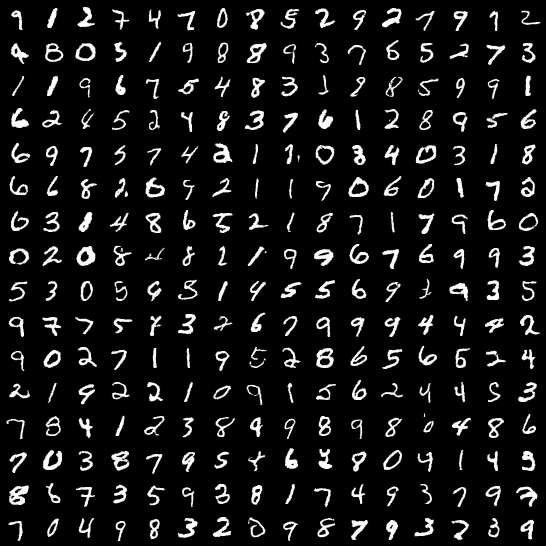 9 1 2 7 4 7 0 8 5 2 9 2 7 9 1 2
4 8 0 5 1 9 8 8 9 3 7 6 5 2 7 3
1 1 9 6 7 5 4 8 3 1 8 8 5 9 9 1
6 2 4 5 2 4 8 3 7 6 1 2 8 9 5 6
6 9 7 5 7 4 2 1 1 0 3 4 0 3 1 8
6 6 8 2 0 9 2 1 1 9 0 6 0 1 7 2
0 3 1 4 8 6 5 2 1 8 7 1 7 9 6 0
0 2 0 8 8 2 1 9 9 6 7 6 9 9 3
5 3 0 5 6 3 1 4 5 5 6 9 1 9 3 5
9 7 7 5 7 3 2 6 7 9 9 9 4 4 4 2
9 0 2 7 1 1 9 5 2 8 6 5 6 5 2 4
2 1 9 2 2 1 0 9 1 5 6 2 4 4 5 3
7 8 4 1 2 3 8 9 9 8 9 8 0 4 8 6
7 0 3 8 7 9 5 6 2 8 0 4 1 4 9
8 6 7 3 5 9 3 8 1 7 4 9 3 7 9
7 0 4 9 8 3 2 0 9 8 7 9 3 7 3 9